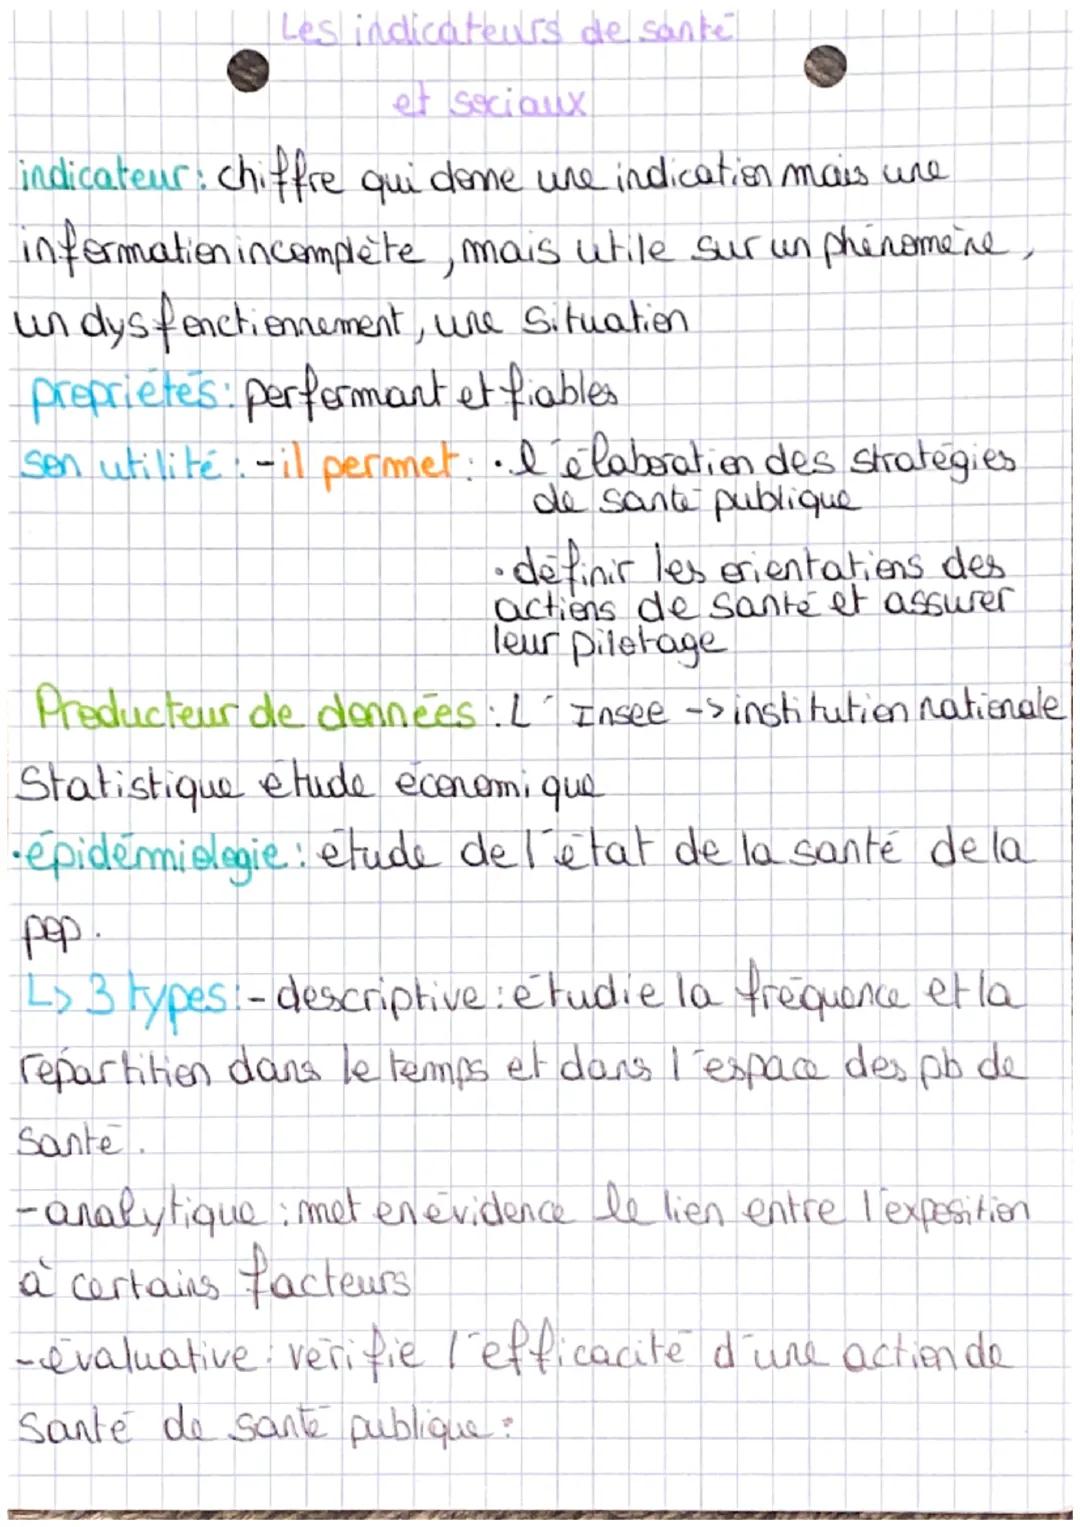 Les indicateurs de santé
et sociaux
indicateur : chiffre qui donne une indication mais une
information incomplète, mais utile sur un phénomène,
un dysfonctionnement, une situation
propriétés : performant et fiables
son utilité : - il permet : · l'élaboration des stratégies
de santé publique
· définir les orientations des
actions de santé et assurer
leur pilotage
Producteur de données : L'Insee -> institution nationale
Statistique étude économique
· épidémiologie : étude de l'état de la santé de la
pop.
↳ 3 types : - descriptive : étudie la fréquence et la
répartition dans le temps et dans l'espace des pb de
santé.
- analytique : met en évidence le lien entre l'exposition
à certains facteurs
- évaluative : vérifie l'efficacité d'une action de
santé de santé publique :